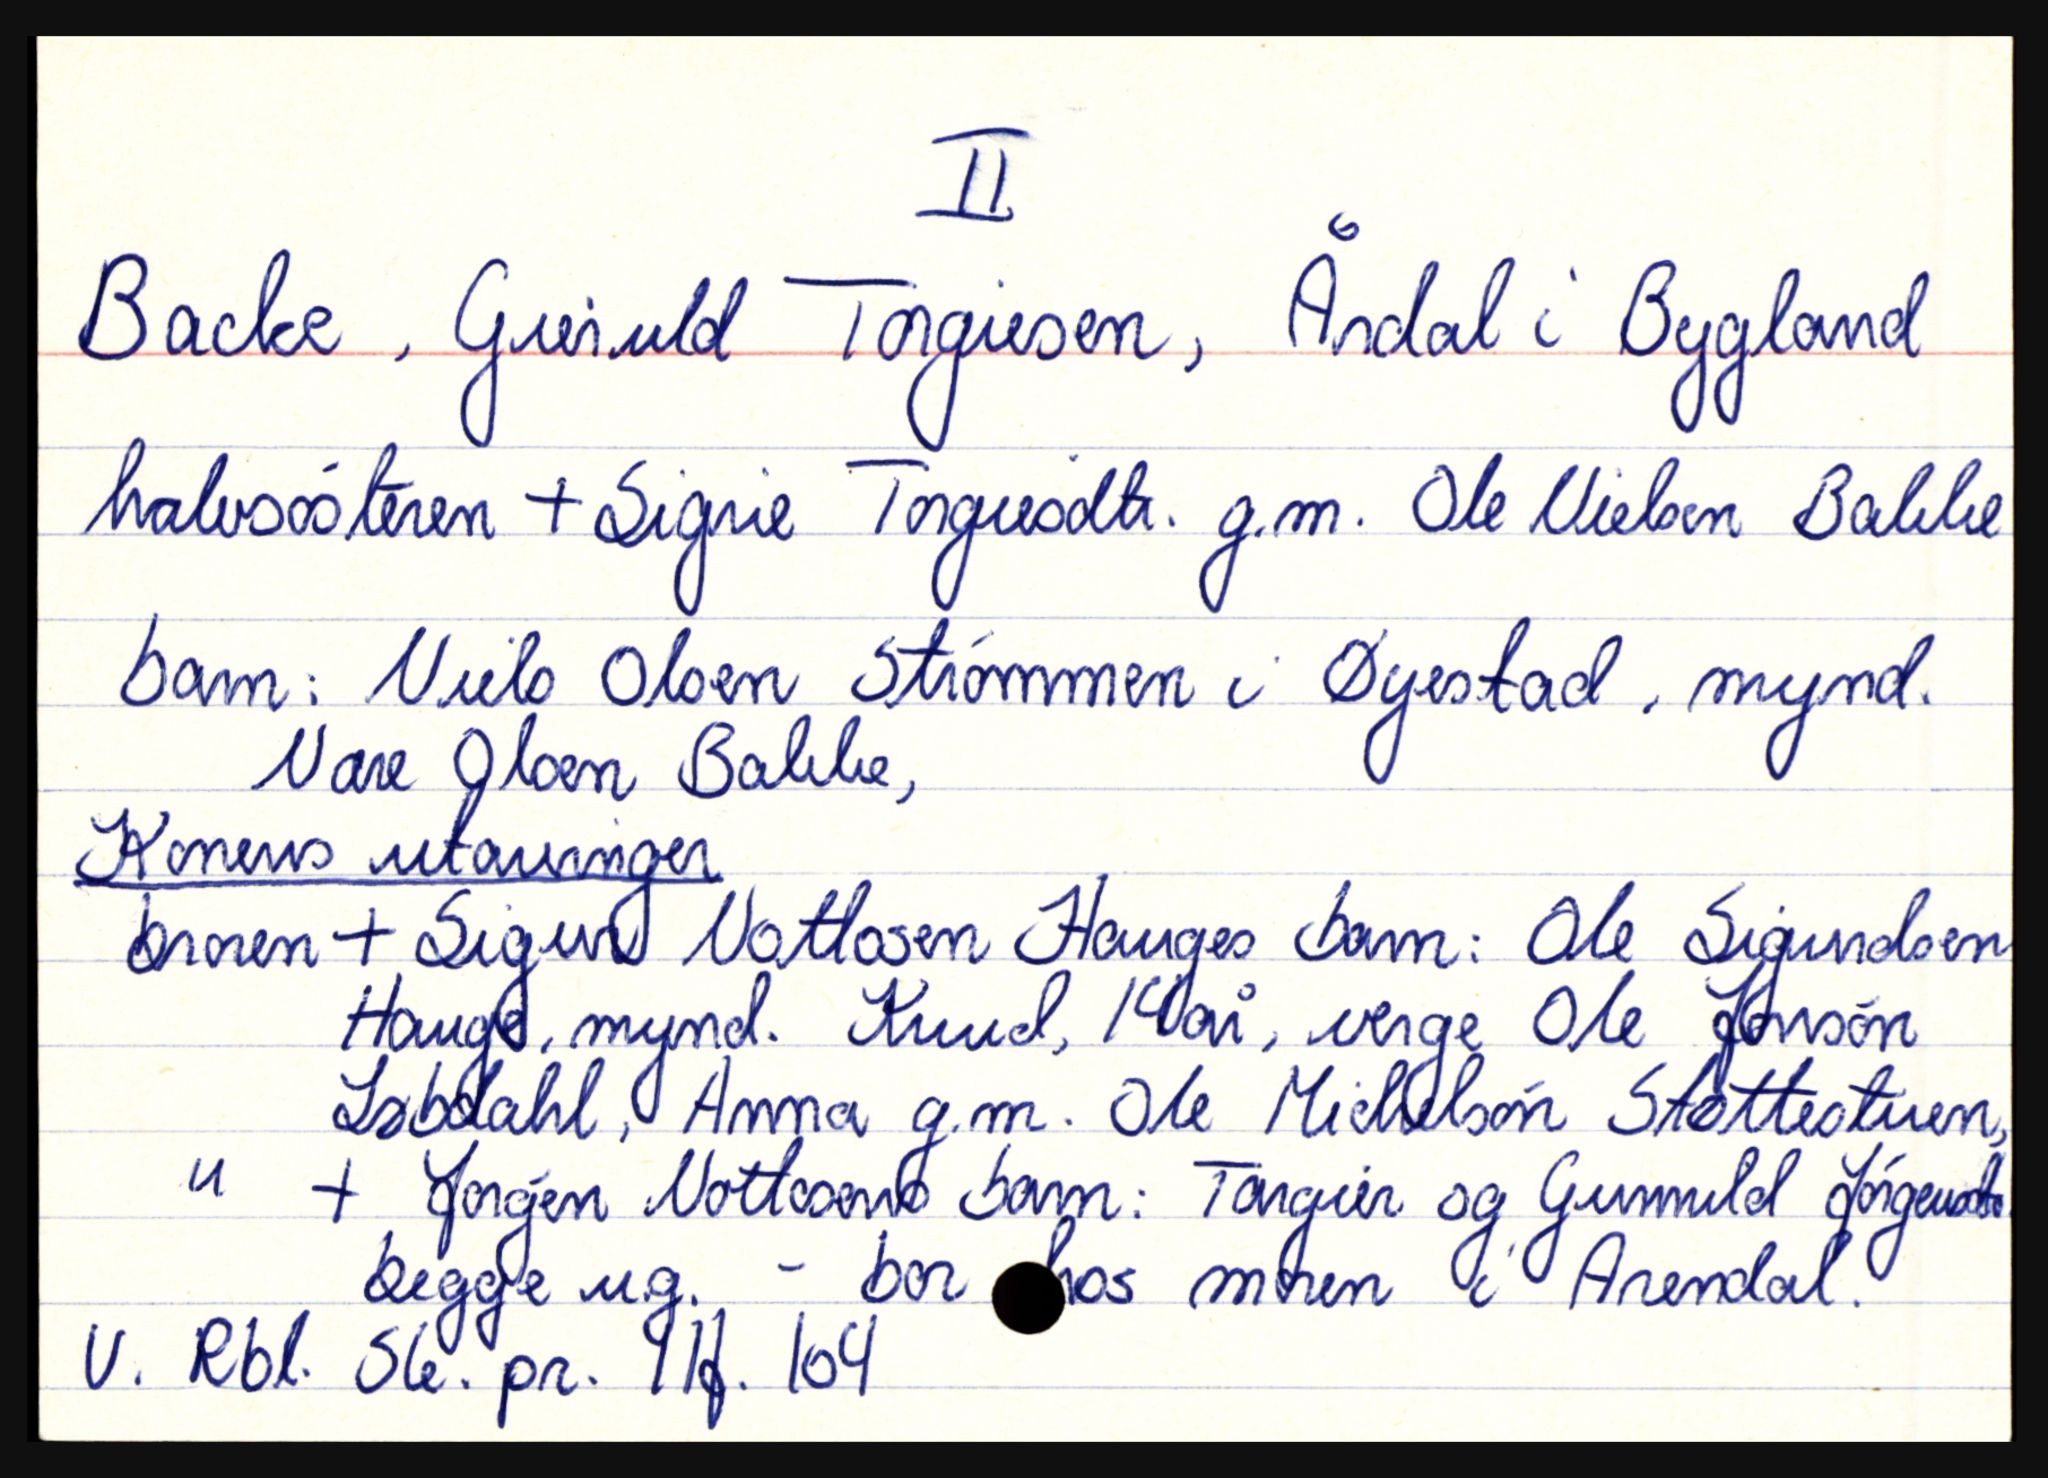 II
Backe, Greiuld Torgiesen, Årdal i Bygland
halvsösteren + Sigrie Torgiesdtr. g.m. Ole Nielsen Bakke
barn: Niels Olsen Strömmen i Øyestad, mynd.
Nare Olsen Bakke,
Konens utarvinger
broren + Sigurd Notlosen Hauges barn: Ole Sigurdsen
Hauge, mynd. Knud, 14 år, verge Ole Jonsön
Løbdahl, Anna g.m. Ole Michelsön Støttestuen,
" + Jørgen Notlosens barn: Torgier og Gunnuld Jörgensdtr.
begge u.g. - bor hos moren i Arendal.
V. Rbl. Sk. pr. 11f. 104